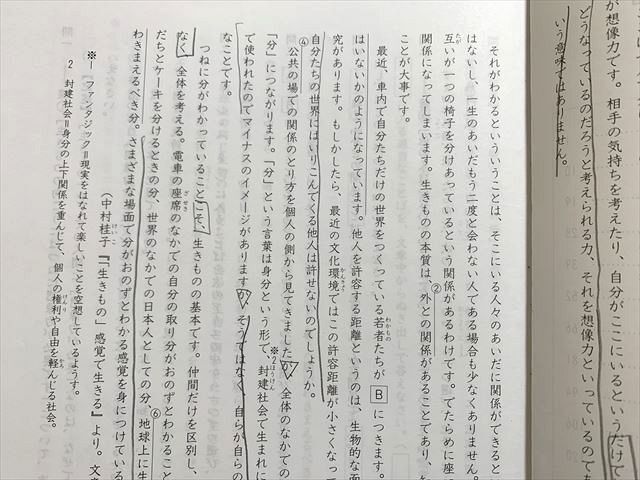 が想像力です。相手の気持ちを考えたり、自分がここにいるというだけで
どうなっているのだろうと考えられる力、それを想像力といっているのでも
いう意味ではありません。
それがわかるというういうことは、そこにいる人々のあいだに関係ができると
はないし、一生のあいだもう二度と会わない人である場合も少なくありません。
互いが一つの椅子を分けあっているという関係があるわけです。でたらめに座
関係になってしまいます。生きものの本質は、外との関係があることであり、
ことが大事です。
最近、車内で自分たちだけの世界をつくっている若者たちが B につきます。
はいないかのようになっています。他人を許容する距離というのは、生物的な面
究があります。もしかしたら、最近の文化環境ではこの許容距離が小さくなっ
④自分たちの世界にはいりこんでくる他人は許せないのでしょうか。
公共の場での関係のとり方を個人の側から見てきましたが、全体のなかでの
「分」につながります。「分」という言葉は身分という形で、※2封建社会で生まれに
て使われたのでマイナスのイメージがありますが、そうではなく、自らが自らの
なことです。
つねに分がわかっていることこそ、生きものの基本です。仲間だけを区別し、
なく、全体を考える。電車の座席のなかでの自分の取り分がおのずとわかること
だちとケーキを分けるときの分、世界のなかでの日本人としての分、⑥地球上に生
わきまえるべき分。さまざまな場面で分がおのずとわかる感覚を身につけている
(中村桂子『「生きもの」感覚で生きる』より。文
※1 ファンタジック＝現実をはなれて楽しいことを空想しているようす。
2 封建社会＝身分の上下関係を重んじて、個人の権利や自由を軽んじる社会。